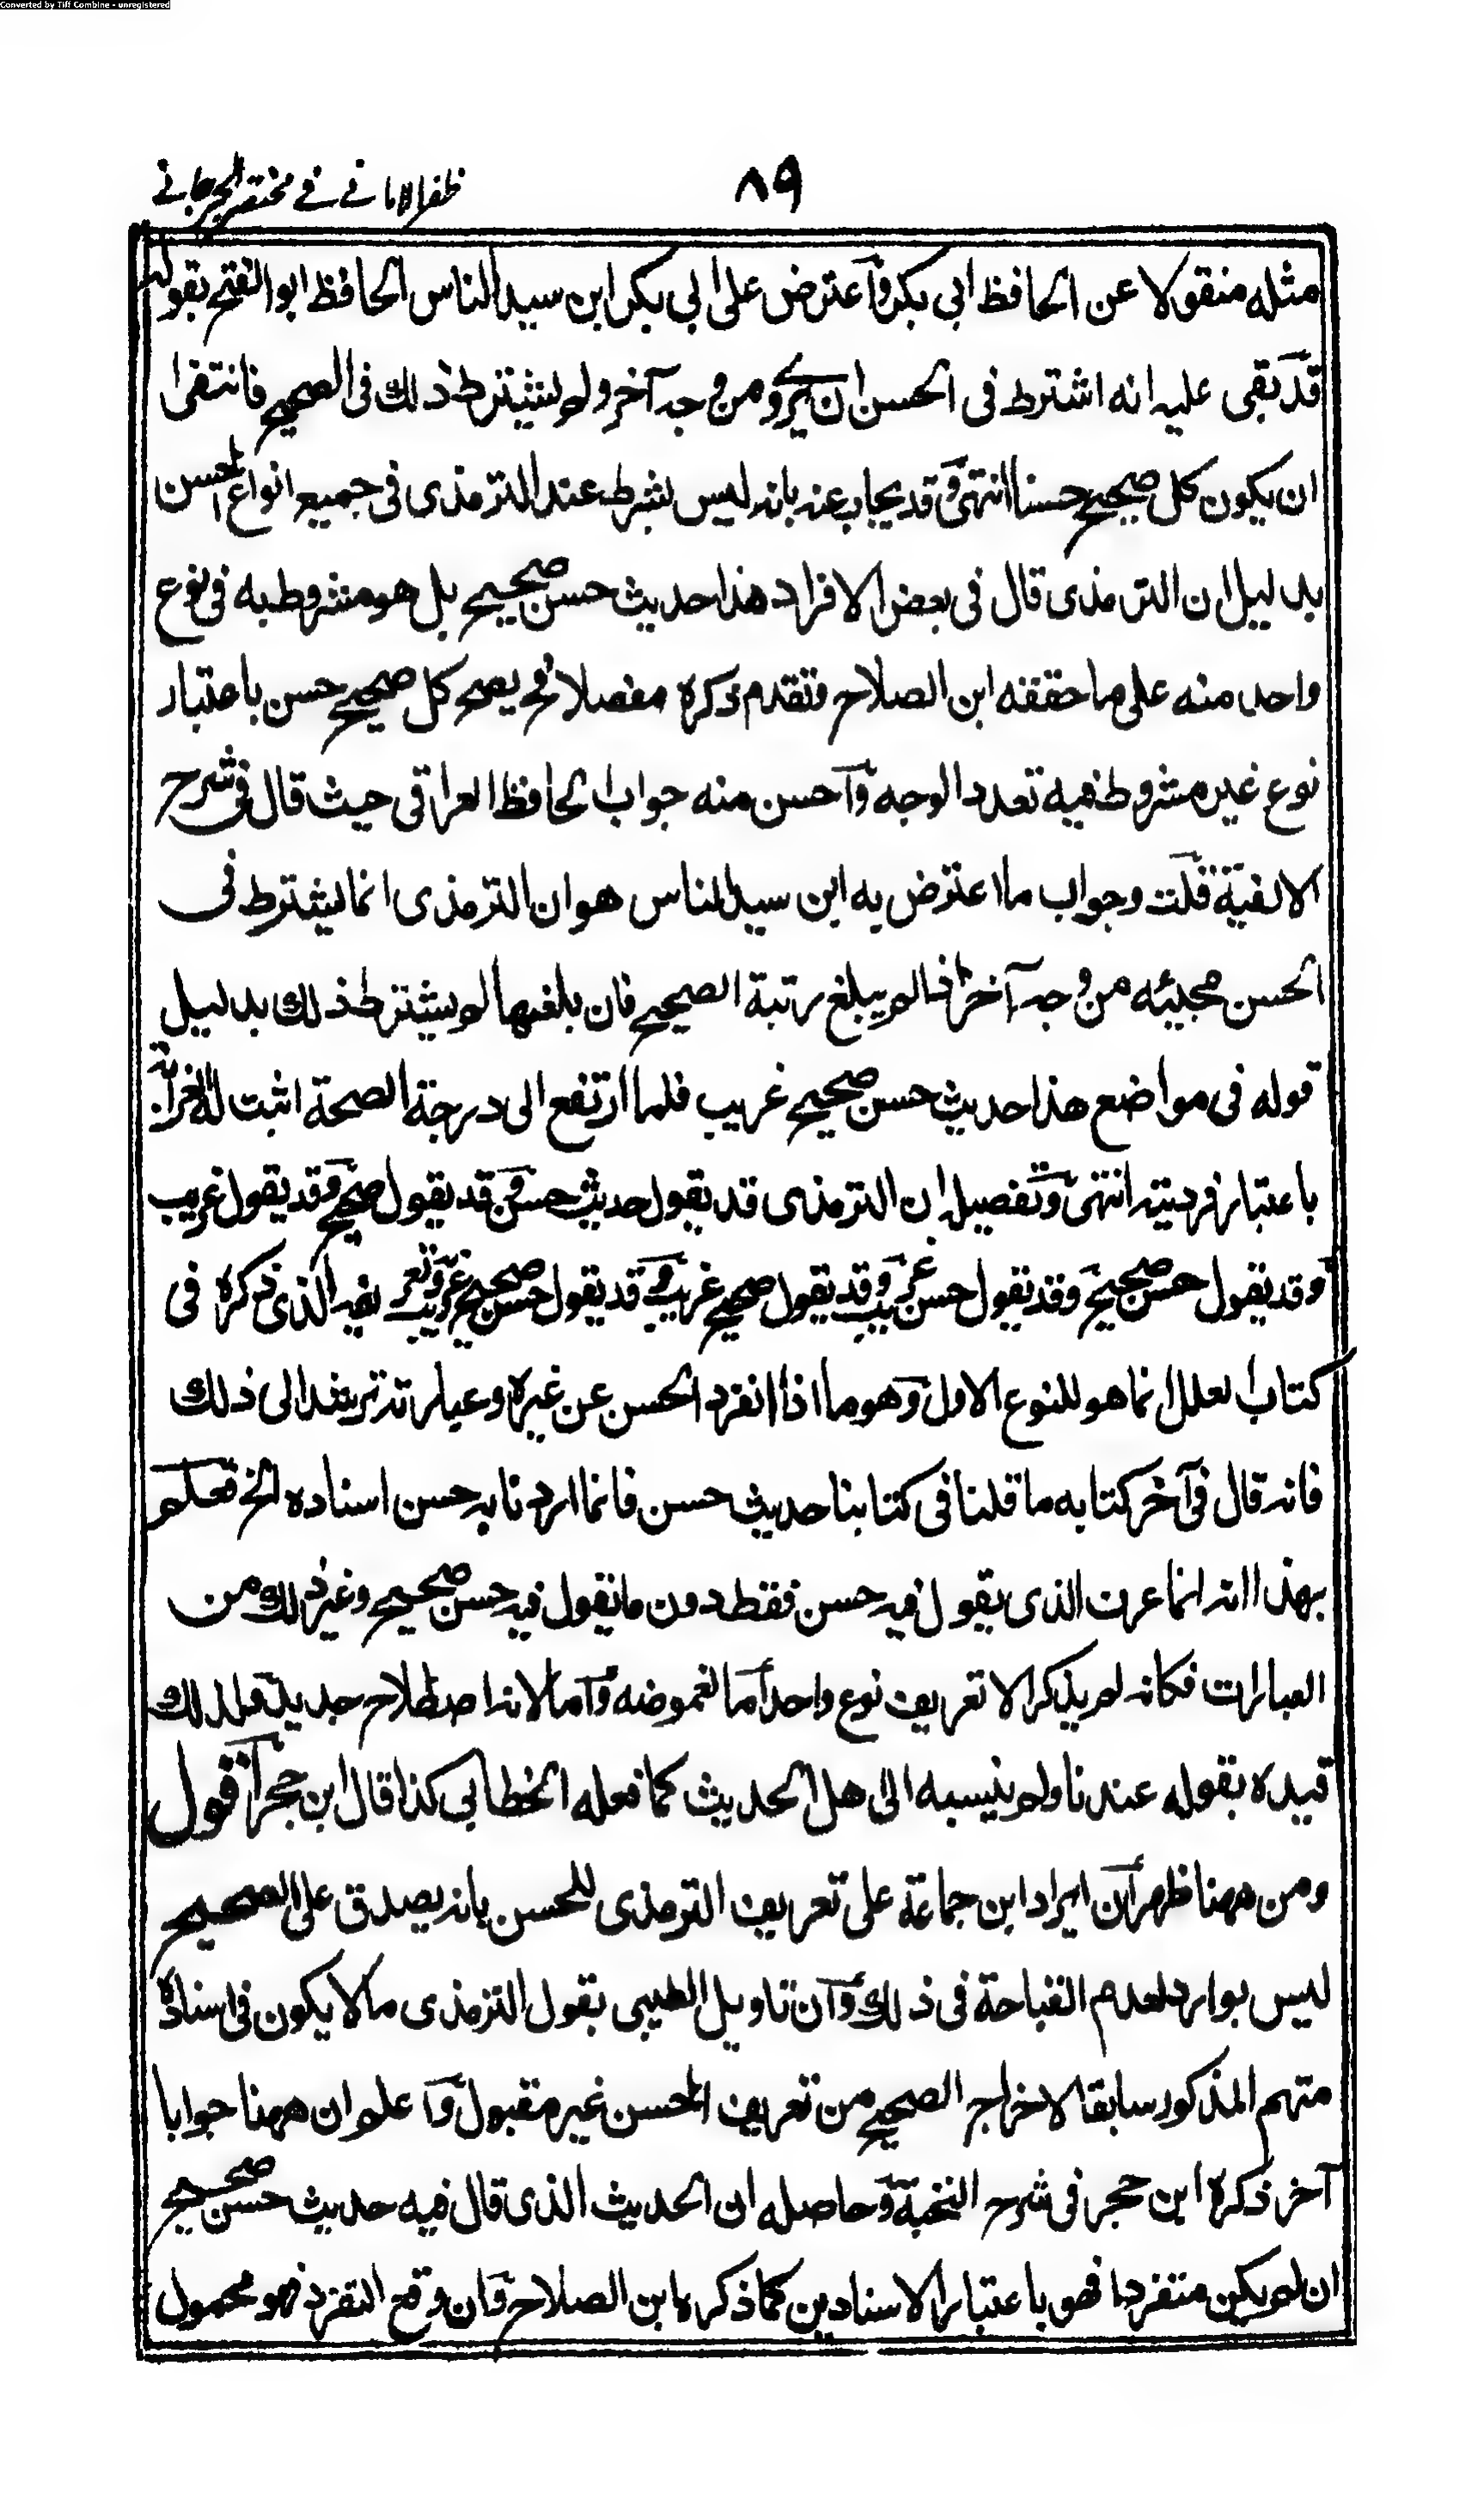 Converted by Tiff Combine - unregistered
٨٩
ظفر الامانی فی مختصر الجرجانی
مثله منقولا عن الحافظ ابی بکر وآعترض علی ابی بکر ابن سید الناس الحافظ ابو الفتح بقوله
قد بقی علیه انه اشترط فی الحسن ان یروی من وجه آخر ولم یشترط ذلك فی الصحیح فانتفی
ان یکون کل صحیح حسنا انتهی وقد یجاب عنه بانه لیس بشرط عند الترمذی فی جمیع انواع الحسن
بدلیل ان الترمذی قال فی بعض الافراد هذا حدیث حسن صحیح بل هو مشروط به فی نوع
واحد منه علی ما حققه ابن الصلاح وتقدم ذکره مفصلا فح یصح کل صحیح حسن باعتبار
نوع غیر مشروط فیه تعدد الوجه وآحسن منه جواب الحافظ العراقی حیث قال فی شرح
الالفیة قلت وجواب ما اعترض به ابن سید الناس هو ان الترمذی انما یشترط فی
الحسن مجیئه من وجه آخر اذا لم یبلغ رتبة الصحیح فان بلغها لم یشترط ذلك بدلیل
قوله فی مواضع هذا حدیث حسن صحیح غریب فلما ارتفع الی درجة الصحة اثبت له الغرابة
باعتبار فردیته انتهی وتفصیله ان الترمذی قد یقول حدیث حسن وقد یقول صحیح وقد یقول غریب
وقد یقول حسن صحیح وقد یقول حسن غریب وقد یقول صحیح غریب وقد یقول حسن صحیح غریب وتعر یفه الذی ذکره فی
کتاب العلل انما هو للنوع الاول وهو ما اذا انفرد الحسن عن غیره وعبارته ترشد الی ذلك
فانه قال فی آخر کتابه ما قلنا فی کتابنا حدیث حسن فانما اردنا به حسن اسناده الخ فعلم
بهذا انه انما عرف الذی یقول فیه حسن فقط دون ما یقول فیه حسن صحیح وغیر ذلك من
العبارات فکانه لم یذکر الا تعریف نوع واحد آما لغموضه وآما لانه اصطلاح جدید ولذلك
قیده بقوله عندنا ولم ینسبه الی اهل الحدیث کما فعله الخطابی کذا قال ابن حجر آقول
ومن ههنا ظهر آن ایراد ابن جماعة علی تعریف الترمذی للحسن بانه یصدق علی الصحیح
لیس بوارد لعدم القباحة فی ذلك وآن تاویل الطیبی بقول الترمذی ما لا یکون فی اسناده
متهم المذکور سابقا لاخراج الصحیح من تعریف الحسن غیر مقبول وآعلم ان ههنا جوابا
آخر ذکره ابن حجر فی شرح النخبة وحاصله ان الحدیث الذی قال فیه حدیث حسن صحیح
ان لم یکن متفردا فهو باعتبار الاسنادین کما ذکره ابن الصلاح وان وقع التفرد فهو محمول